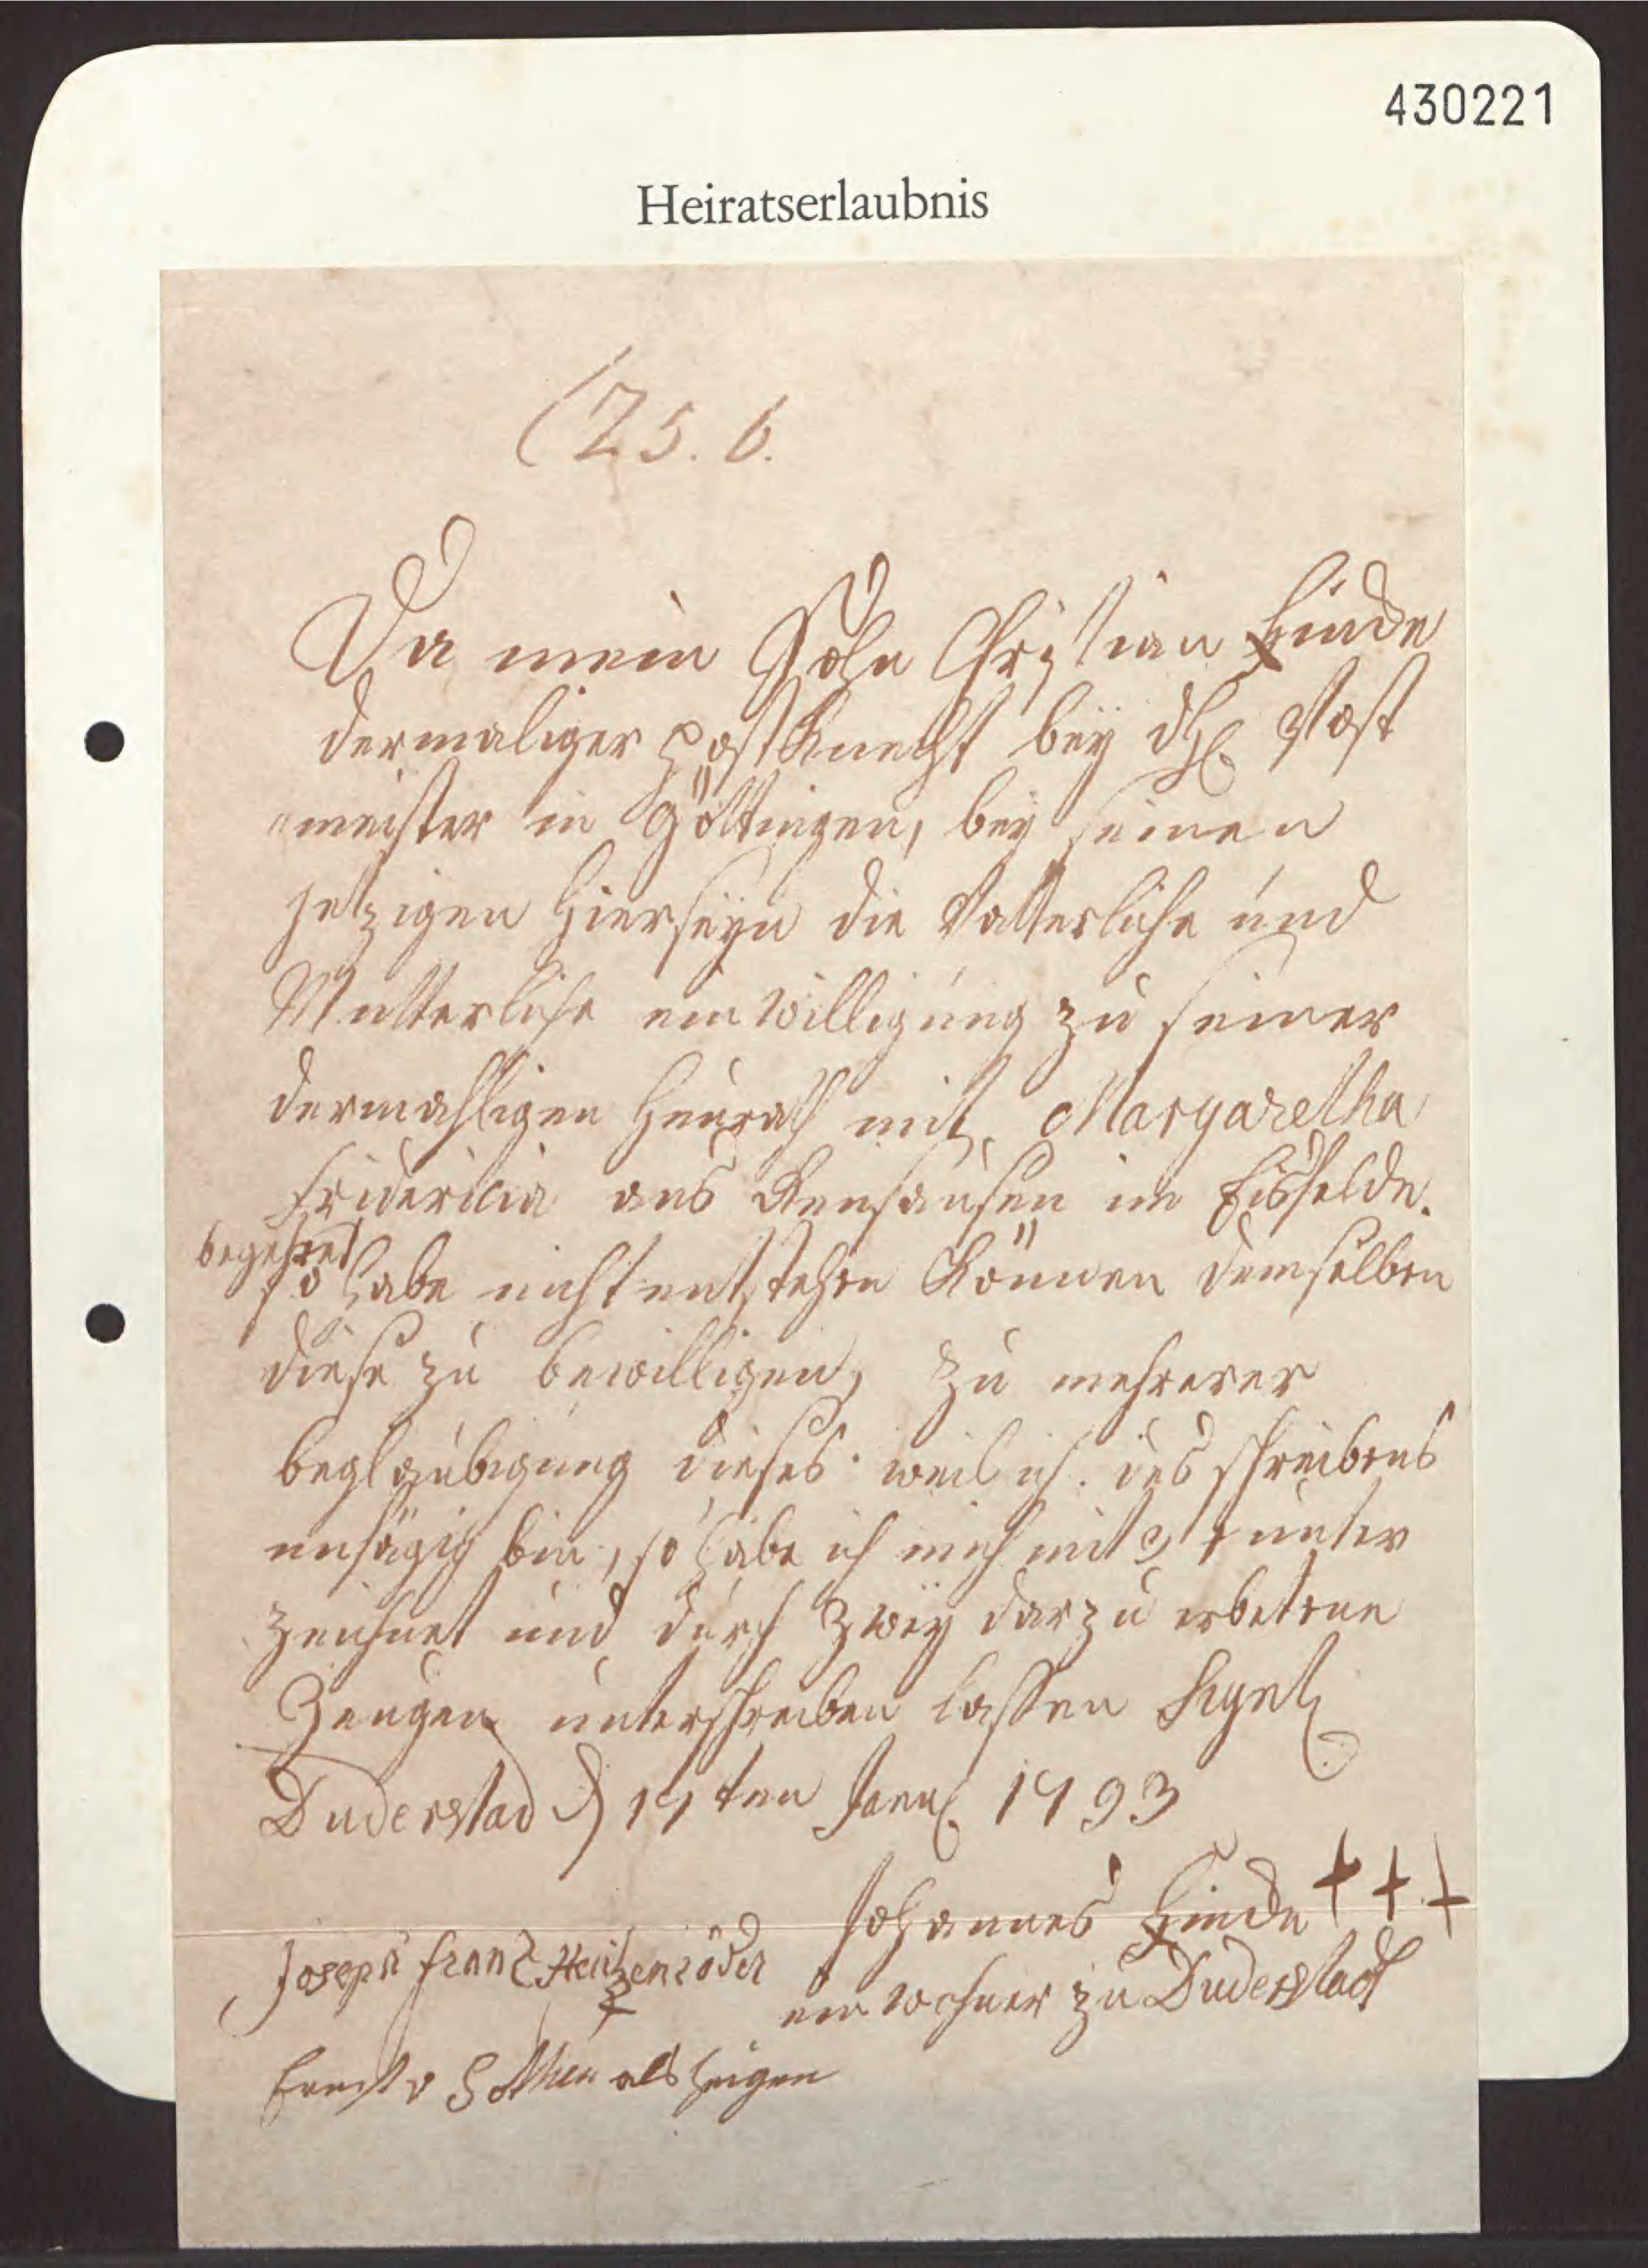 430221
Heiratserlaubnis
(25. 6.
Da mein Sohn Christian Hinde
dermaliger Postknecht bey dH. Post
"meister in Göttingen, bey seinen
jetzigen hierseyn die Vatterliche und
Mutterliche einwilligung zu seiner
dermahligen Heurath mit Margaretha
Fridericia aus Renshausen im Eisfelde.
begehret
so habe nicht entstehen können demselben
diese zu bewilligen, zu mehrerer
beglaubigung dieses weil ich des schreibens
unfähig bin, so habe ich mich mit 3 + unter
zeichnet und durch zwey darzu erbetene
Zeugen unterschreiben lassen Sigel
Duderstad d 17ten Janu. 1793
Johannes Hinde + + +
Joseph Franz Heitzenröder
einwohner zu Duderstadt
Ernst v Sothen als zeigen